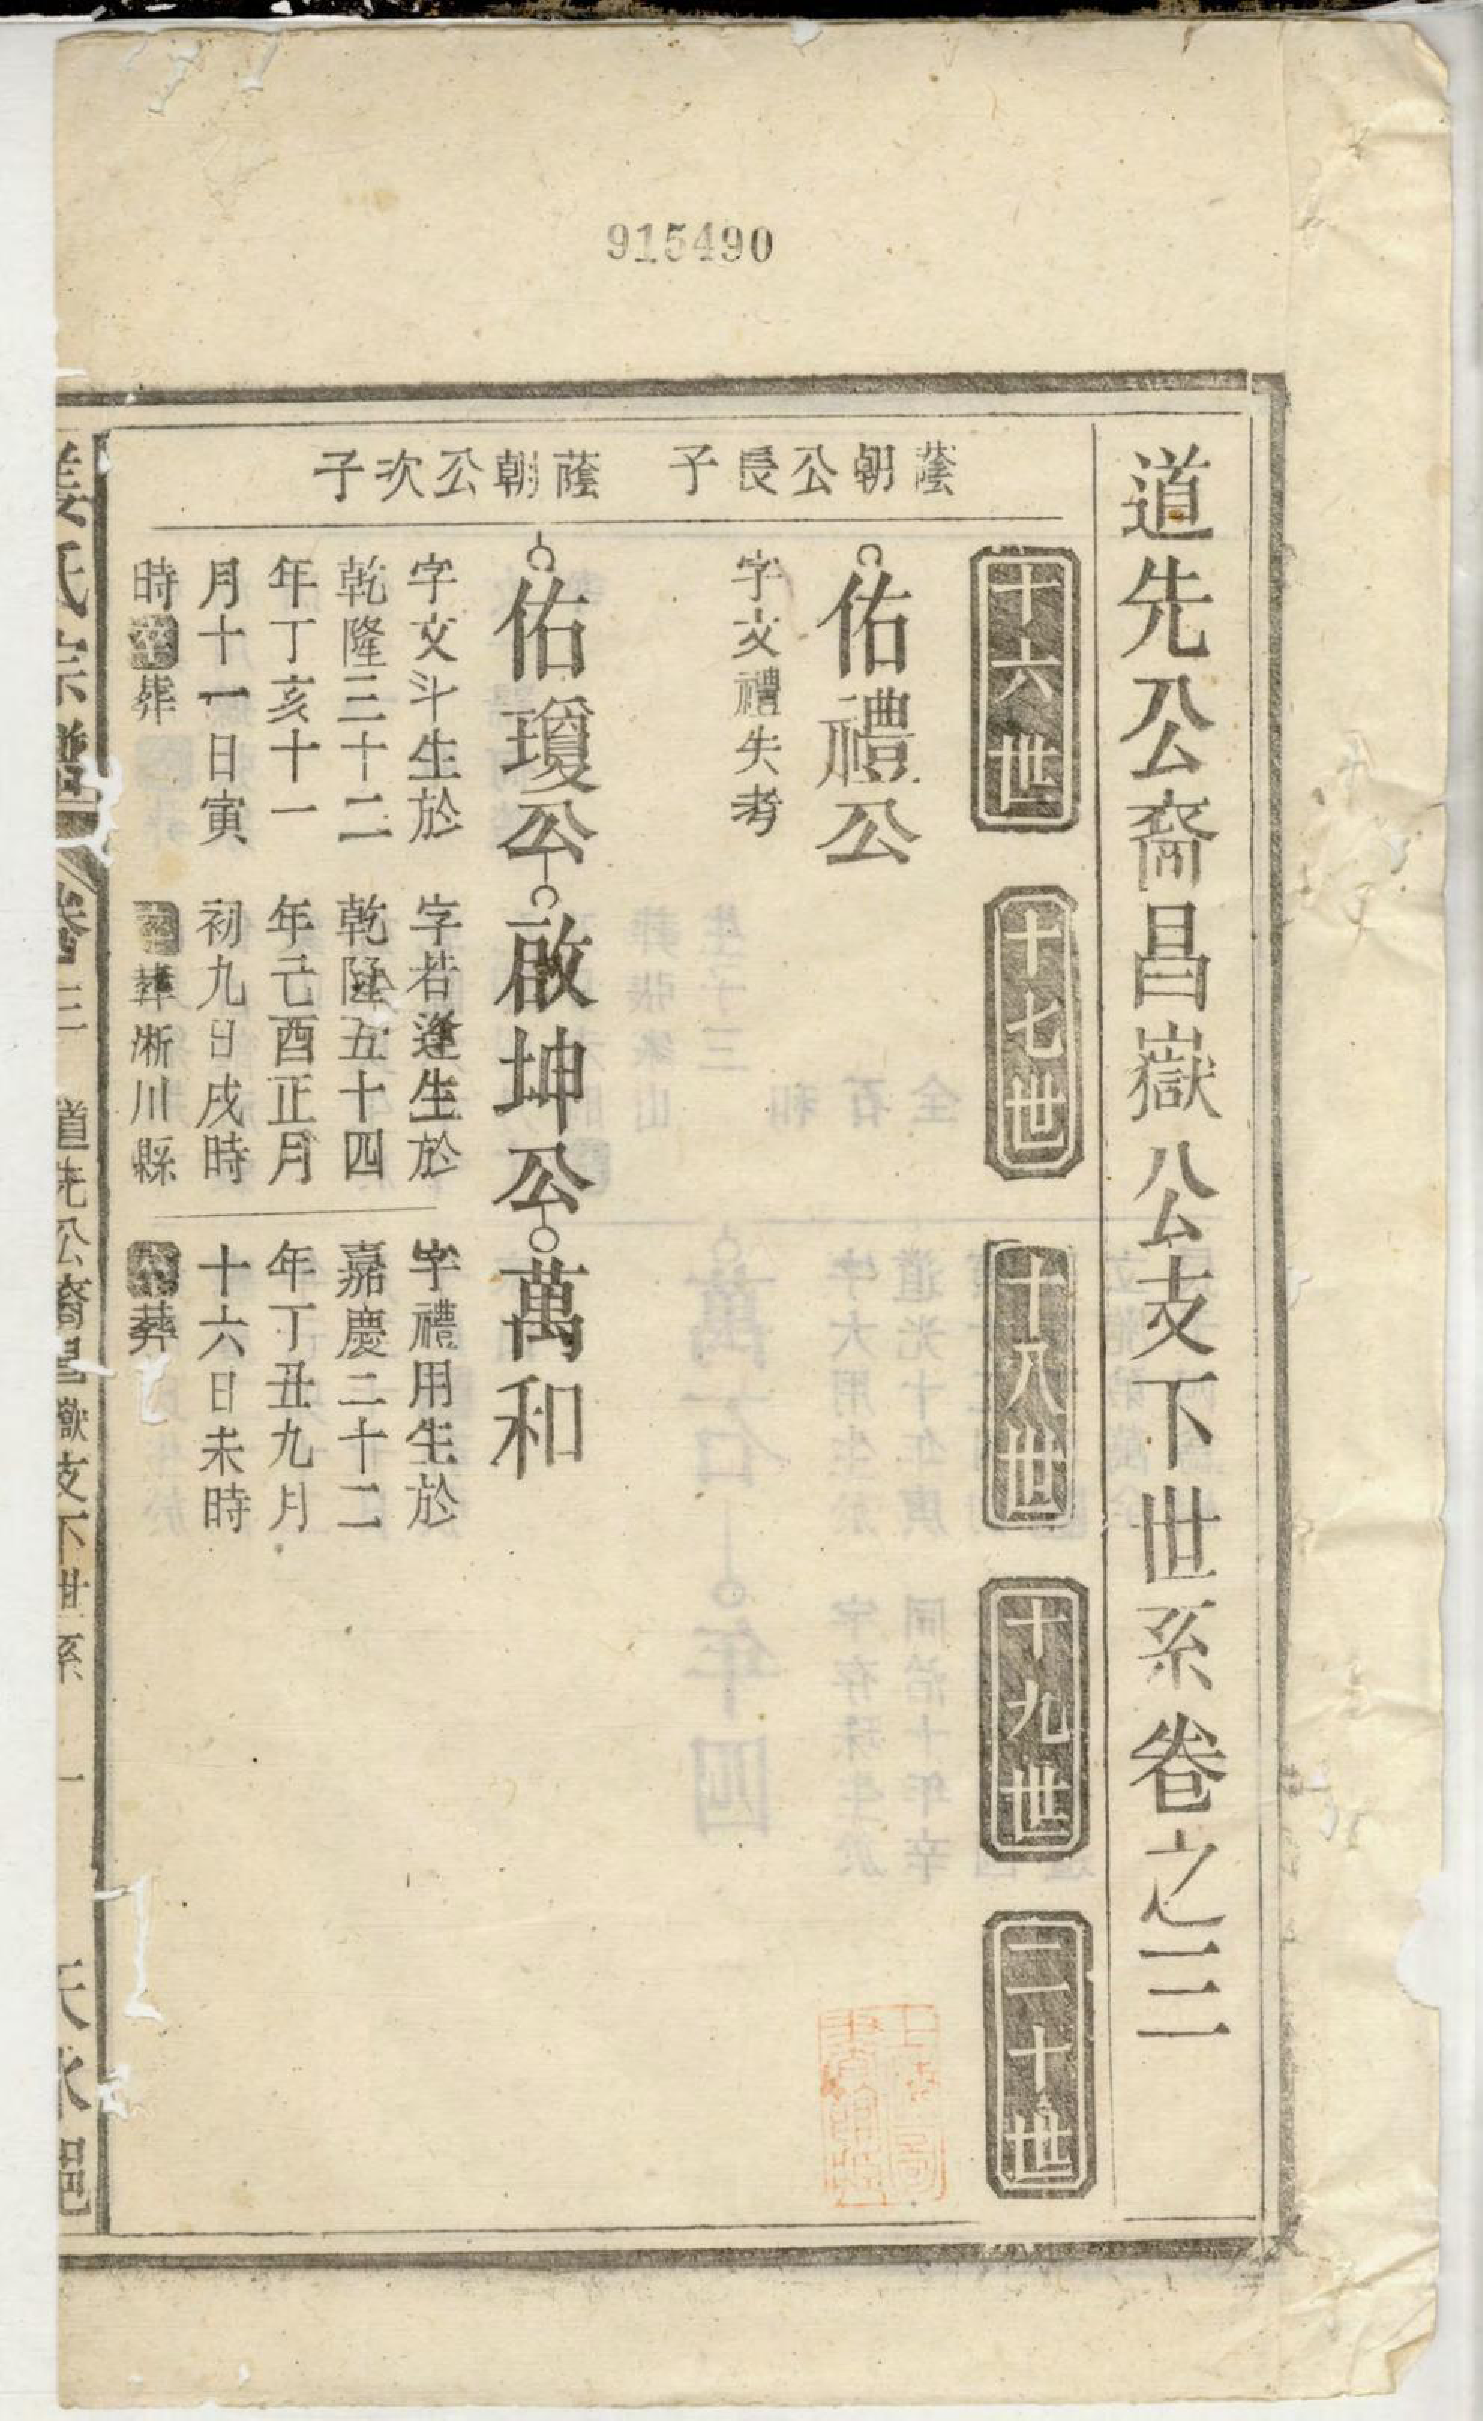 915490
道先公裔昌嶽公支下世系卷之三
十六世
十七世
十八世
十九世
二十世
蔭朝公長子
佑禮公
字文禮失考
蔭朝公次子
佑瓊公
字文斗生於
乾隆三十二
年丁亥十一
月十一日寅
時卒葬
啟坤公
字若逢生於
乾隆五十四
年己酉正月
初九日戌時
卒葬淅川縣
萬和
字禮用生於
嘉慶二十二
年丁丑九月
十六日未時
葬
姜氏宗譜
卷三
道先公裔昌嶽支下世系
一
天水